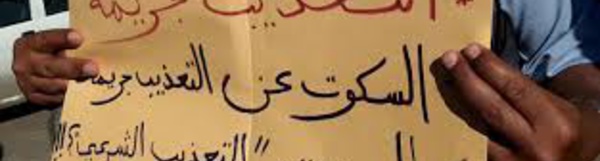 * التعذيب جريمة
السكوت عن التعذيب جريمة
"التعذيب الشرعي؟!!!